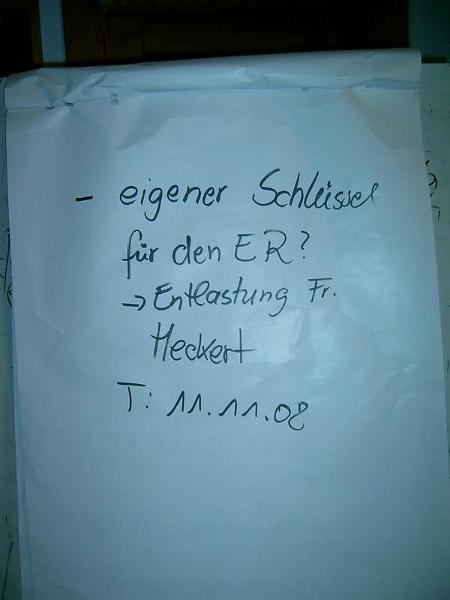 - eigener Schlüssel
für den ER?
→ Entlastung Fr.
Heckert
T: 11.11.08